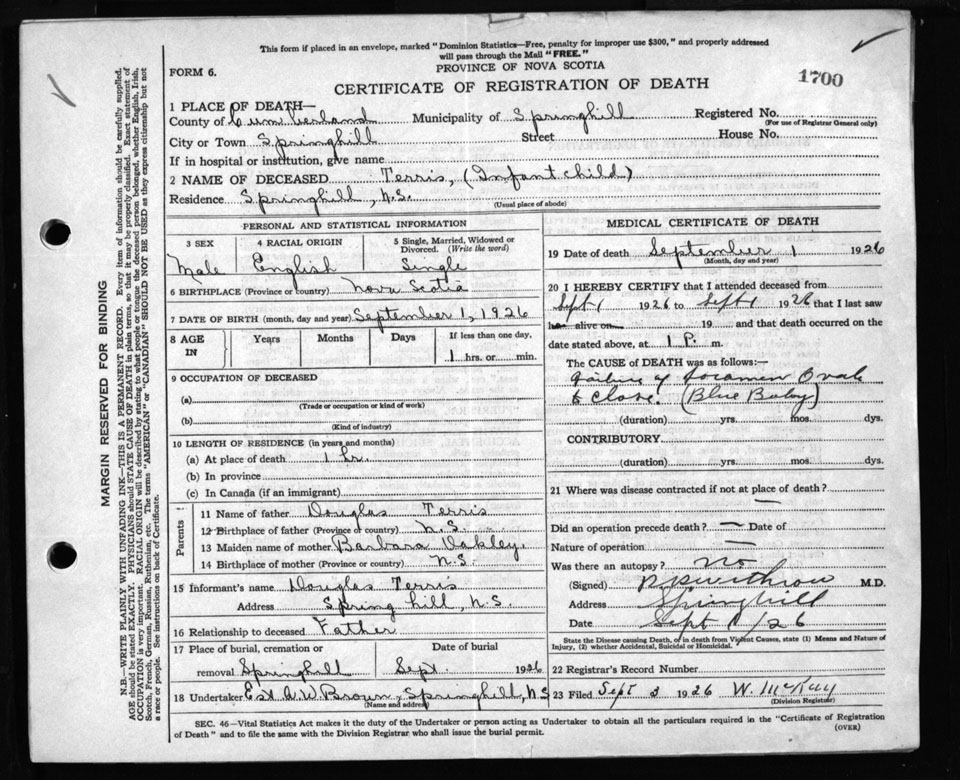 This form if placed in an envelope, marked "Dominion Statistics—Free, penalty for improper use $300," and properly addressed
will pass through the Mail "FREE."
PROVINCE OF NOVA SCOTIA
FORM 6.
CERTIFICATE OF REGISTRATION OF DEATH
1700
1 PLACE OF DEATH—
County of Cumberland Municipality of Springhill Registered No.
(For use of Registrar General only)
City or Town Springhill Street House No.
If in hospital or institution, give name
2 NAME OF DECEASED Terris, (Infant child)
Residence Springhill, N.S.
(Usual place of abode)
PERSONAL AND STATISTICAL INFORMATION
3 SEX 4 RACIAL ORIGIN 5 Single, Married, Widowed or
Divorced. (Write the word)
Male English Single
6 BIRTHPLACE (Province or country) Nova Scotia
7 DATE OF BIRTH (month, day and year) September 1, 1926
8 AGE IN Years Months Days If less than one day,
1 hrs. or min.
9 OCCUPATION OF DECEASED
(a)
(Trade or occupation or kind of work)
(b)
(Kind of industry)
10 LENGTH OF RESIDENCE (in years and months)
(a) At place of death 1 hr.
(b) In province
(c) In Canada (if an immigrant)
Parents
11 Name of father Douglas Terris
12 Birthplace of father (Province or country) N.S.
13 Maiden name of mother Barbara Oakley.
14 Birthplace of mother (Province or country) N.S.
15 Informant's name Douglas Terris
Address Spring hill, N.S.
16 Relationship to deceased Father
17 Place of burial, cremation or Date of burial
removal Springhill Sept. 1926
18 Undertaker Est. A.W. Brown, Springhill, NS
(Name and address)
MEDICAL CERTIFICATE OF DEATH
19 Date of death September 1 1926
(Month, day and year)
20 I HEREBY CERTIFY that I attended deceased from
Sept 1 1926 to Sept 1 1926 that I last saw
h alive on 19 and that death occurred on the
date stated above, at 1 P. m.
The CAUSE of DEATH was as follows:—
Failure of foramen Ovale
to close. (Blue Baby)
(duration) yrs. mos. dys.
CONTRIBUTORY
(duration) yrs. mos. dys.
21 Where was disease contracted if not at place of death?
—
Did an operation precede death? — Date of
Nature of operation —
Was there an autopsy? No
(Signed) M.D.
Address Springhill
Date Sept 1/26
State the Disease causing Death, or in death from Violent Causes, state (1) Means and Nature of
Injury, (2) whether Accidental, Suicidal or Homicidal.
22 Registrar's Record Number
23 Filed Sept 3 1926 W. McKay
(Division Registrar)
SEC. 46—Vital Statistics Act makes it the duty of the Undertaker or person acting as Undertaker to obtain all the particulars required in the "Certificate of Registration
of Death" and to file the same with the Division Registrar who shall issue the burial permit.
(OVER)
MARGIN RESERVED FOR BINDING
N.B.—WRITE PLAINLY WITH UNFADING INK—THIS IS A PERMANENT RECORD. Every item of information should be carefully supplied.
AGE should be stated EXACTLY. PHYSICIANS should STATE CAUSE OF DEATH in plain terms, so that it may be properly classified. Exact statement of
OCCUPATION is very important. RACIAL ORIGIN will be described by stating to what people or tongue the deceased person belonged, whether English, Irish,
Scotch, French, German, Russian, Ruthenian, etc. The terms "AMERICAN" or "CANADIAN" SHOULD NOT BE USED as they express citizenship but not
a race or people. See instructions on back of Certificate.